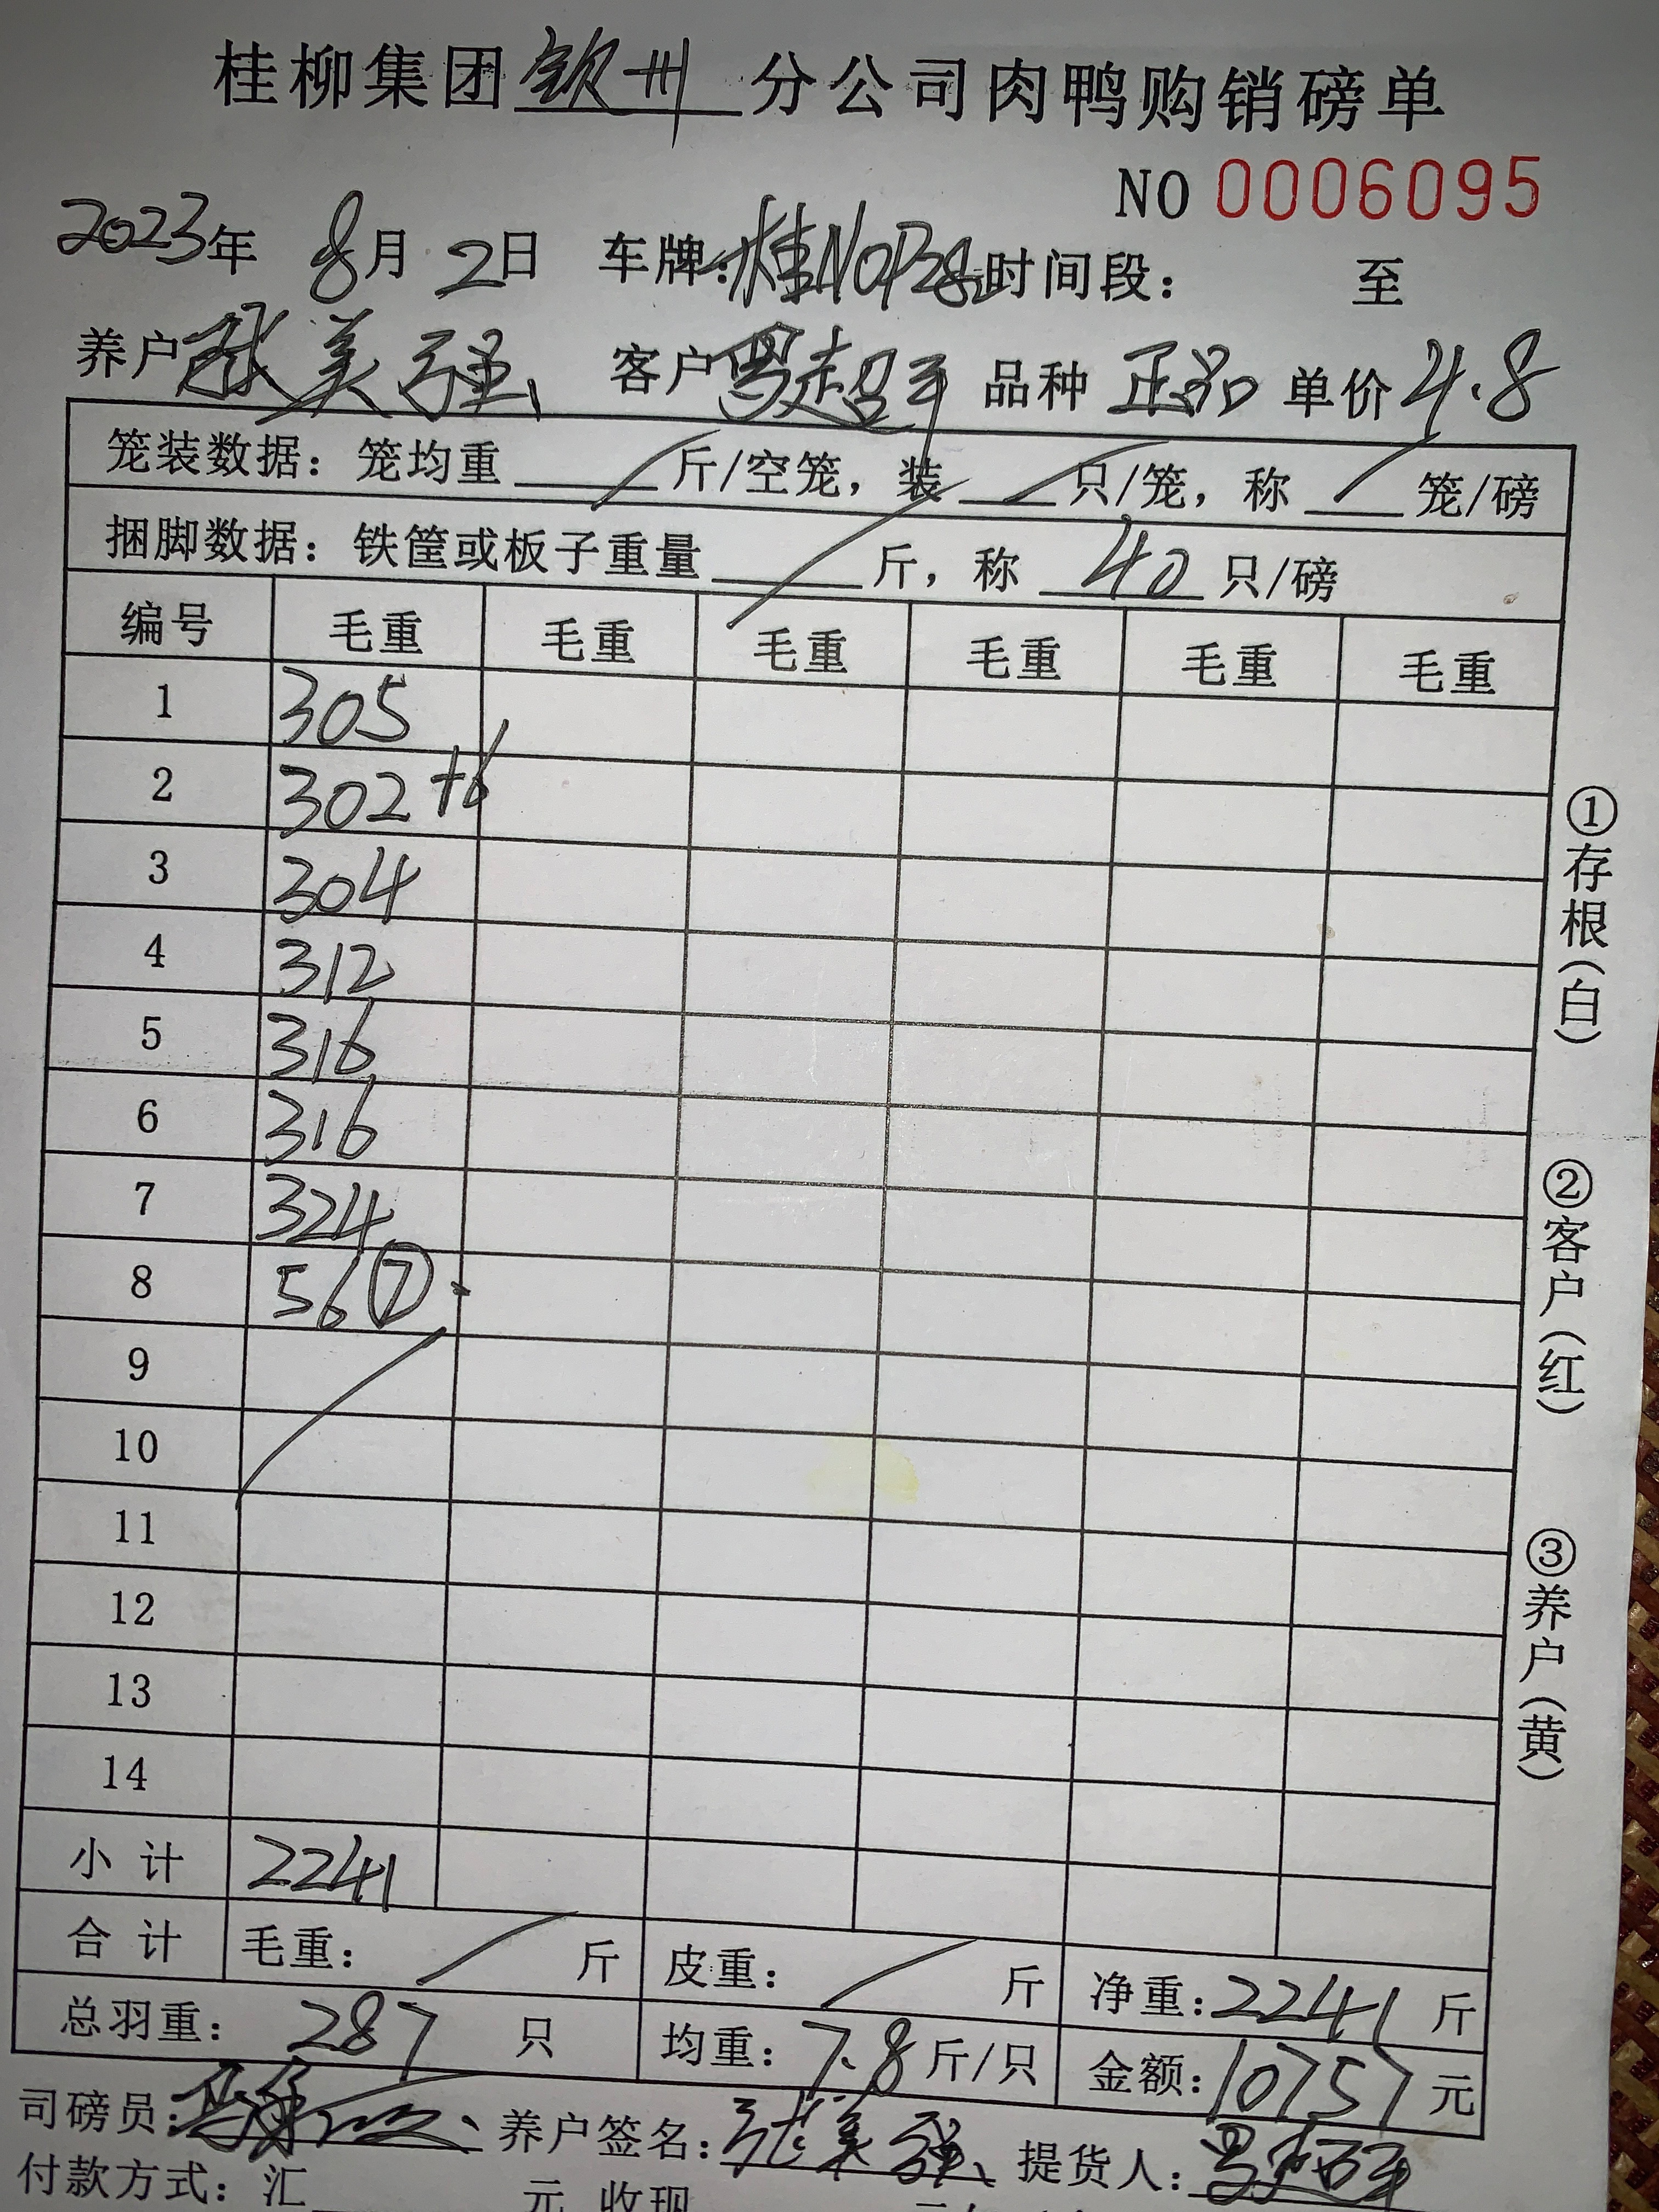 桂柳集团钦州分公司肉鸭购销磅单
NO 0006095
2023年 8月 2日 车牌: 时间段: 至
养户张美强 客户罗超平 品种 正品 单价4.8
笼装数据: 笼均重 / 斤/空笼, 装 / 只/笼, 称 / 笼/磅
捆脚数据: 铁筐或板子重量 / 斤, 称 40 只/磅
编号 毛重 毛重 毛重 毛重 毛重 毛重
1 305
2 302 +6
3 304
4 312
5 316
6 316
7 324
8 56 ⑦
9
10
11
12
13
14
小计 2241
合计 毛重: / 斤 皮重: / 斤 净重: 2241 斤
总羽重: 287 只 均重: 7.8 斤/只 金额: 10757 元
司磅员: 养户签名: 张美强 提货人: 罗超平
付款方式: 汇 元 收现
①存根(白)
②客户(红)
③养户(黄)